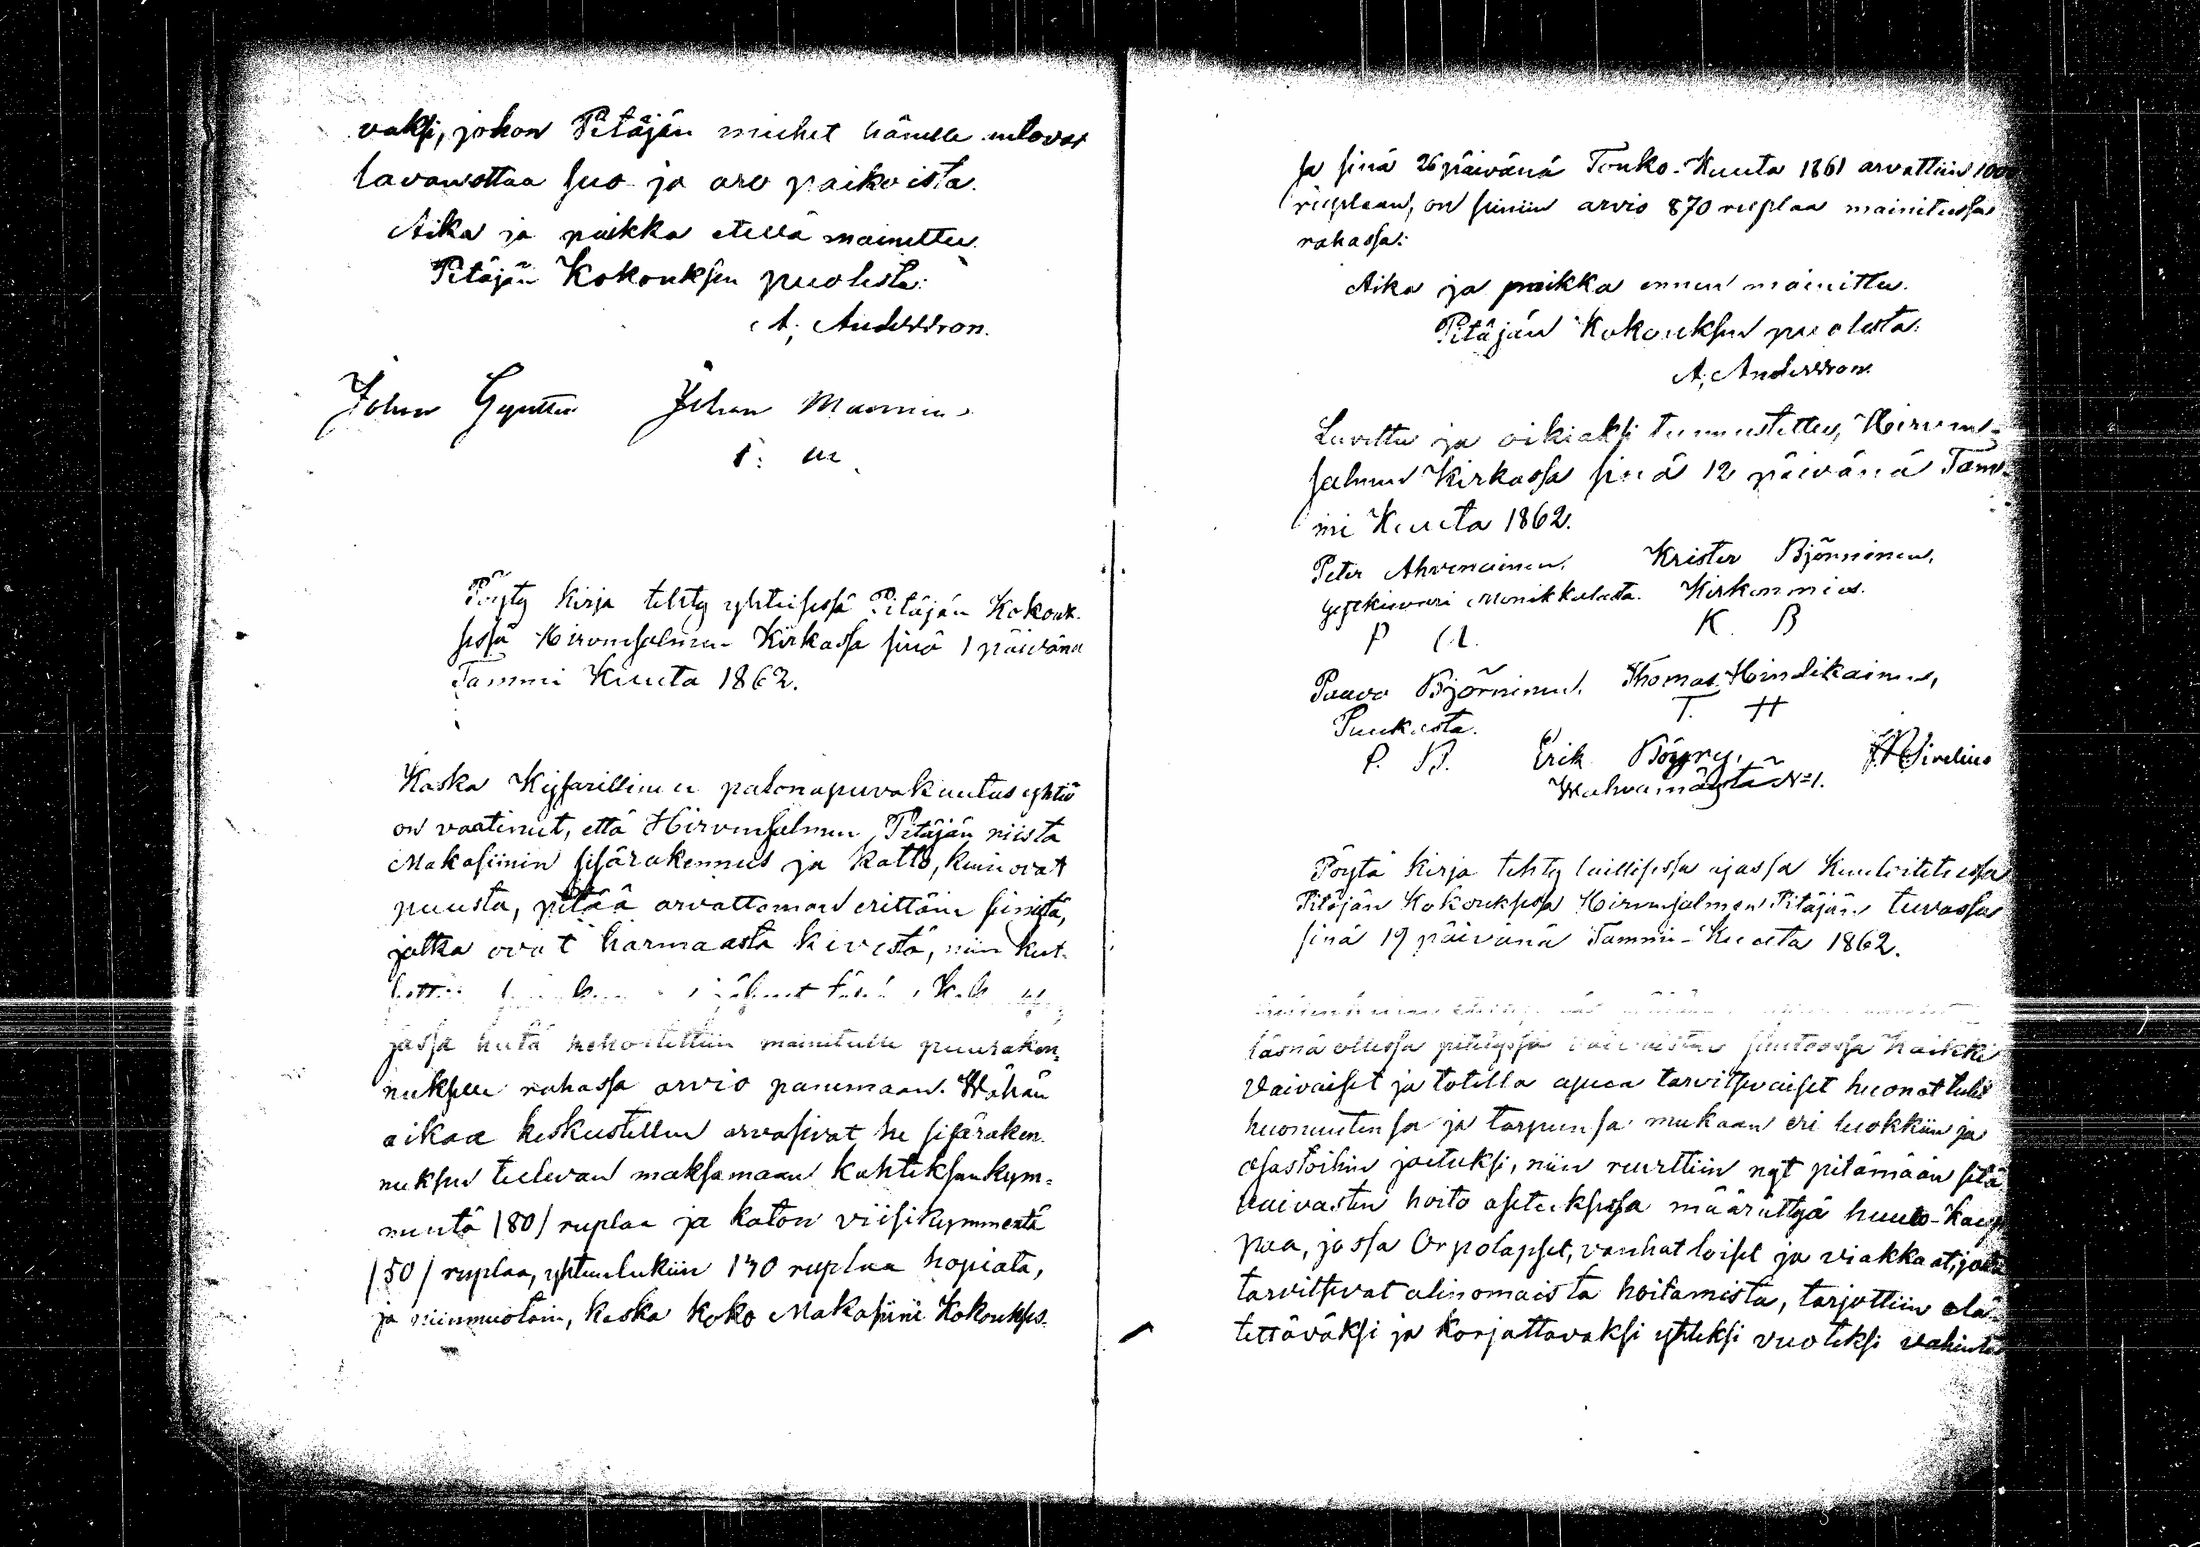 vaksi, johon Pitäjän miehet hänelle
lavanottaa suo ja aro paikoista.
Aika ja paikka etellä mainittu.
Pitäjän Kokouksen puolesta:
A. Andersson.
Johan Johan Manninen
I. M.
Pöyty Kirja tehty yhteisessä Pitäjän Kokouk-
sessa Hirvensalmen Kirkossa sinä 1 päivänä
Tammi Kuuta 1862.
Koska Keisarillinen palonapuvakuutus yhtiö
on vaatinut, että Hirvensalmen Pitäjän niistä
Makasiinin sisärakennus ja katto, kuin ovat
puusta, pitää arvattaman erittäin seinistä,
jotka ovat harmaasta kivestä, niin kut-
jassa heitä kehoitettiin mainitulle puuraken-
nukselle rahassa arvio panemaan. Wähän
aikaa keskustellen arvasivat he sisäraken-
nuksen tulevan maksamaan kahdeksankym-
mentä /80/ ruplaa ja katon viisikymmentä
/50/ ruplaa, yhteenlukiin 130 ruplaa hopiata,
ja niinmuotoin, koska koko Makasiini Kokoukses-
sa sinä 26 päivänä Touko-Kuuta 1861 arvattiin 1000
ruplaan, on seiniin arvio 870 ruplaa mainitussa
rahassa:
Aika ja paikka ennen mainittu.
Pitäjän Kokouksen puolesta:
A. Andersson.
Luvettu ja oikiaksi tunnustettu, Hirven-
salmen Kirkossa sinä 12 päivänä Tam-
mi Kuuta 1862.
Peter Ahvenainen, Krister Björninen,
Monikkalasta. Kirkonmies.
P A. K B
Paavo Björninen, Thomas Hindikainen,
Puukasta. T. H
P. B. Erik Pöyry, Sirelius
Wahvamäystä N=1.
Pöytä Kirja tehty laillisessa ajassa Kuuloitetussa
Pitäjän Kokouksessa Hirvensalmen Pitäjän tuvassa
sinä 19 päivänä Tammi-Kuuta 1862.
läsnä ollessa pitäjässä kaikki
Vaivaiset ja totella apua tarvitsevaiset huonot tulit
huonuutensa ja tarpunsa mukaan eri luokkiin ja
osastoihin jaetuksi, niin ruvettiin nyt pitämään sitä
vaivasten hoito asetuksessa määrättyä huuto-Kaup-
paa, jossa Orpolapset, vanhat loiset ja viakkaat, jotka
tarvitsevat alinomaista hoitamista, tarjottiin elä-
tettäväksi ja korjattavaksi yhteksi vuoteksi